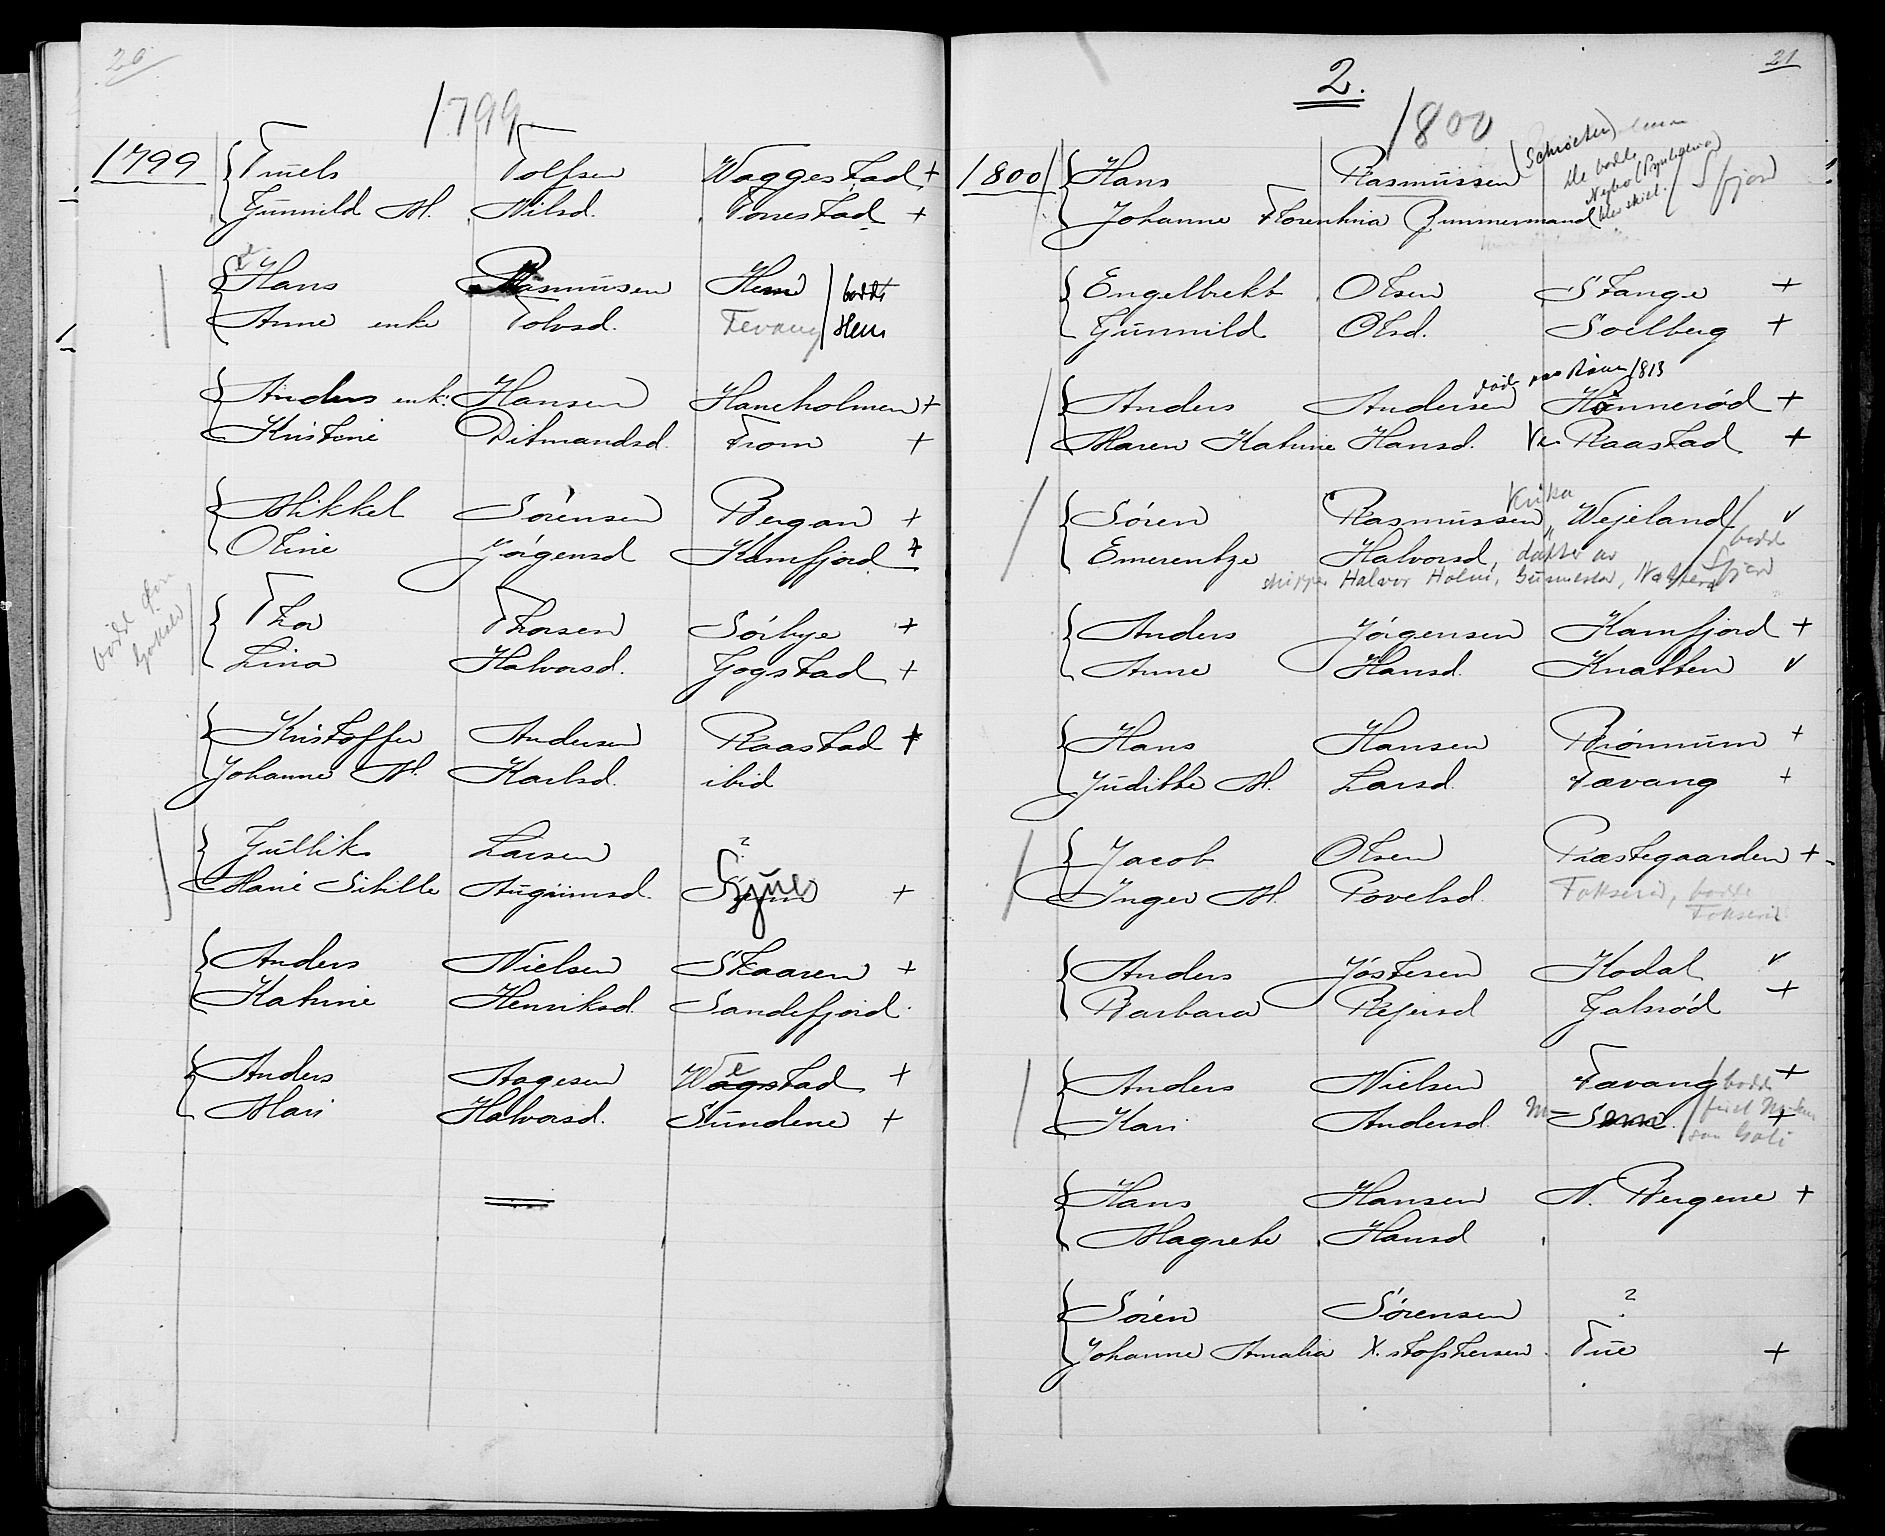 20
1799
1799 Truels Tolfsen Waggestad +
Gunnild M. Nilsd. Tonestad +
Hans Rasmussen Hem bodde
Anne enke Tolvsd. Tevang Hem
Anders enk: Hansen Haneholmen +
Kristine Ditmandsd. From +
Mikkel Sørensen Bergan +
Oline Jørgensd Kamfjord +
Thor Thorsen Sörbye +
Lina Halvorsd. Gogstad +
bodde
Kristoffer Andersen Raastad +
Johanne M. Karlsd. ibid
Gullik Larsen ?
Marie Sibille Augrimsd. +
Anders Nielsen Skaaren +
Katrine Henriksd. Sandefjord.
Anders Aagesen +
Mari Halvorsd. Sundene +
21
2.
1800
1800 Hans Rasmussen (Schrøder)
De bodde
Nybo
blev skilt.
Sfjord
Johanne Florentina Zimmermand
Engelbrekt Olsen Stange +
Gunnild Olsd. Soelberg +
død paa 1813
Anders Andersen Hönnerød +
Maren Katrine Hansd. Raastad +
Søren Rasmussen Wejeland v
Emerentze Halvorsd. datter av
bodde Sfjord
skipper Halvor Holm,
Anders Jørgensen Kamfjord +
Anne Hansd. Knatten v
Hans Hansen Brønnum +
Judithe M. Larsd. Tavang +
Jacob Olsen Præstegaarden +
Inger M. Povelsd. Fokserød, bodde
Fokserød
Anders Jøstesen Kodal v
Barbara Rejersd Galsrød +
Anders Nielsen Tavang bodde +
Kari Andersd. Sem først +
Hans Hansen N. Bergene +
Magrete Hansd
Søren Sørensen ?
Johanne Amalia X.stofhersen. Tue +